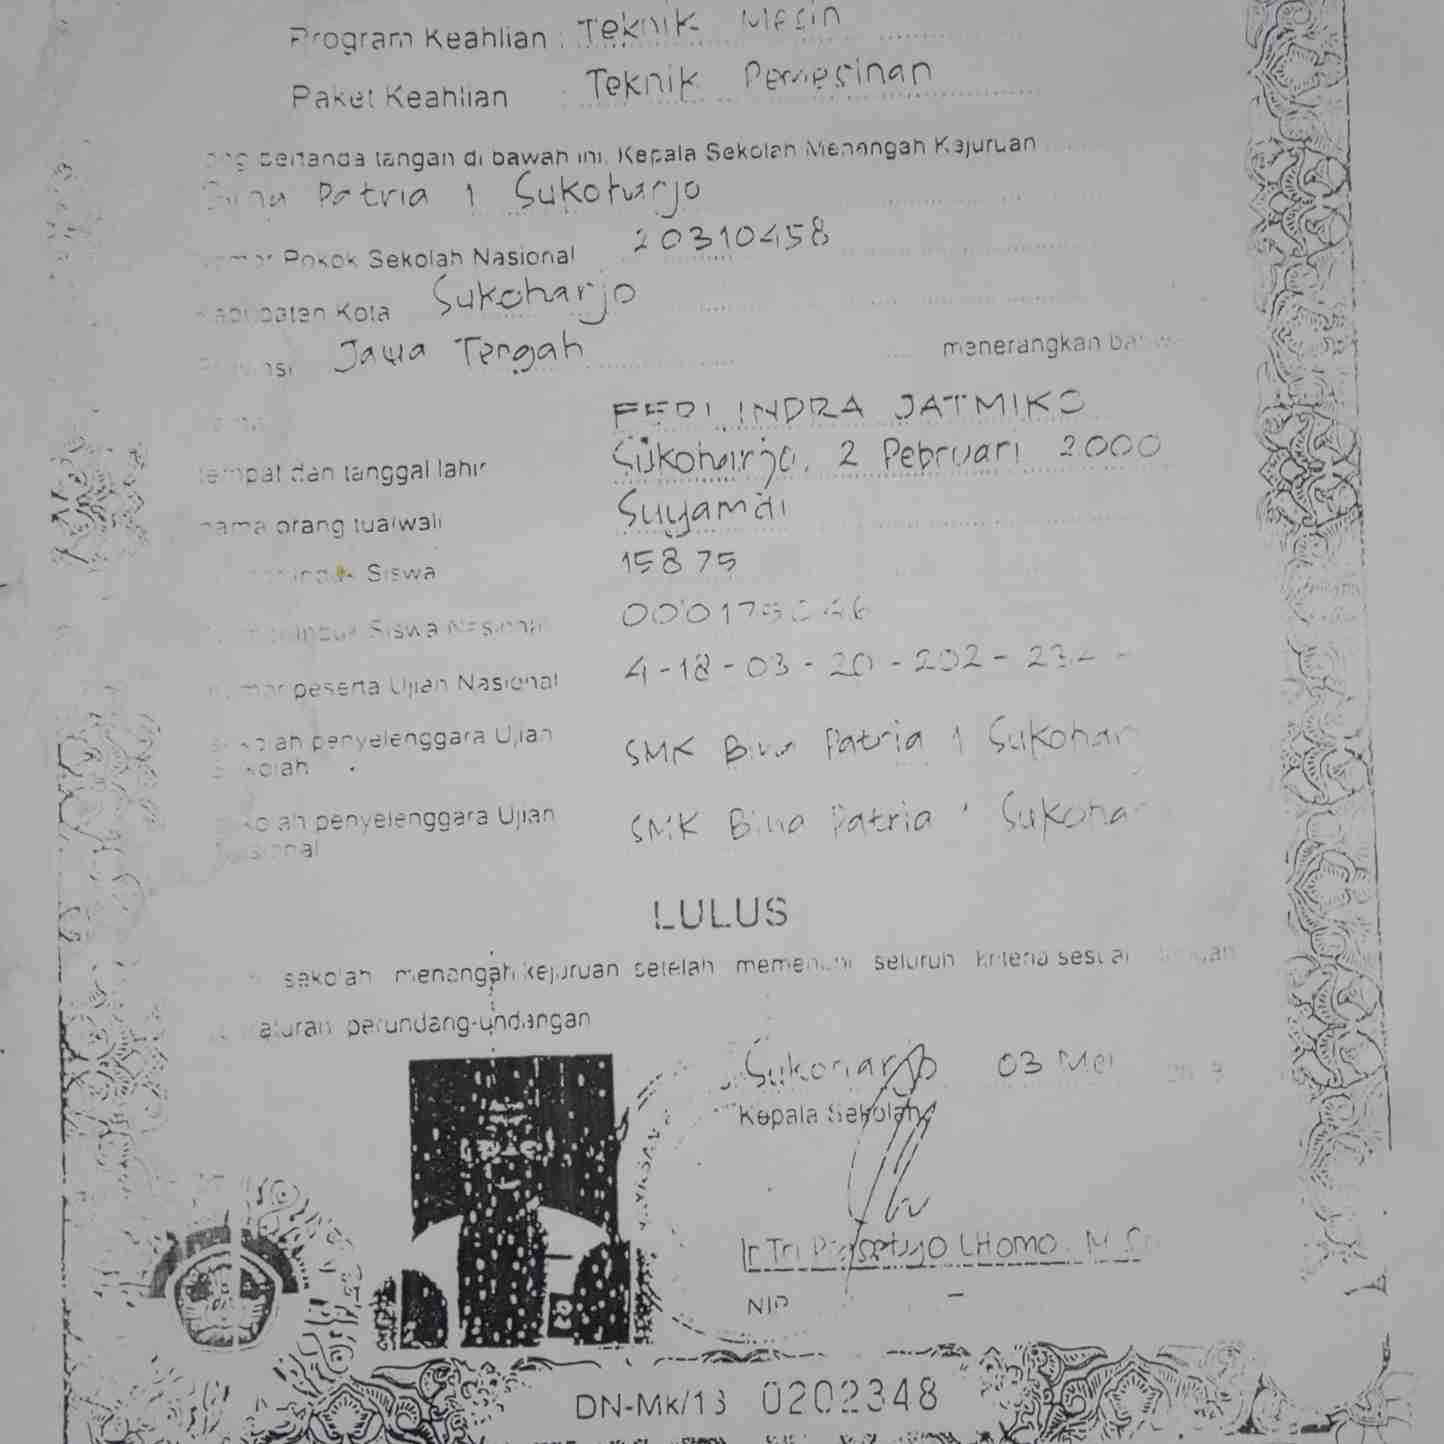 Program Keahlian : Teknik Mesin
Paket Keahlian : Teknik Pemesinan
bertanda tangan di bawah ini, Kepala Sekolah Menengah Kejuruan
Bina Patria 1 Sukoharjo
Nomor Pokok Sekolah Nasional 20310458
Kabupaten Kota Sukoharjo
Provinsi Jawa Tengah menerangkan bahwa
nama INDRA JATMIKO
tempat dan tanggal lahir Sukoharjo, 2 Pebruari 2000
nama orang tua/wali Suyamdi
Siswa 15875
Siswa Nasional
Nomor peserta Ujian Nasional 4-18-03-20-202-
Sekolah penyelenggara Ujian SMK Bina Patria 1
Sekolah
Sekolah penyelenggara Ujian SMK Bina Patria
Nasional
LULUS
sekolah menengah kejuruan setelah memenuhi seluruh kriteria sesuai dengan
peraturan perundang-undangan
Sukoharjo 03 Mei
Kepala Sekolah
Ir Tri Prasetyo
NIP -
DN-Mk/13 0202348